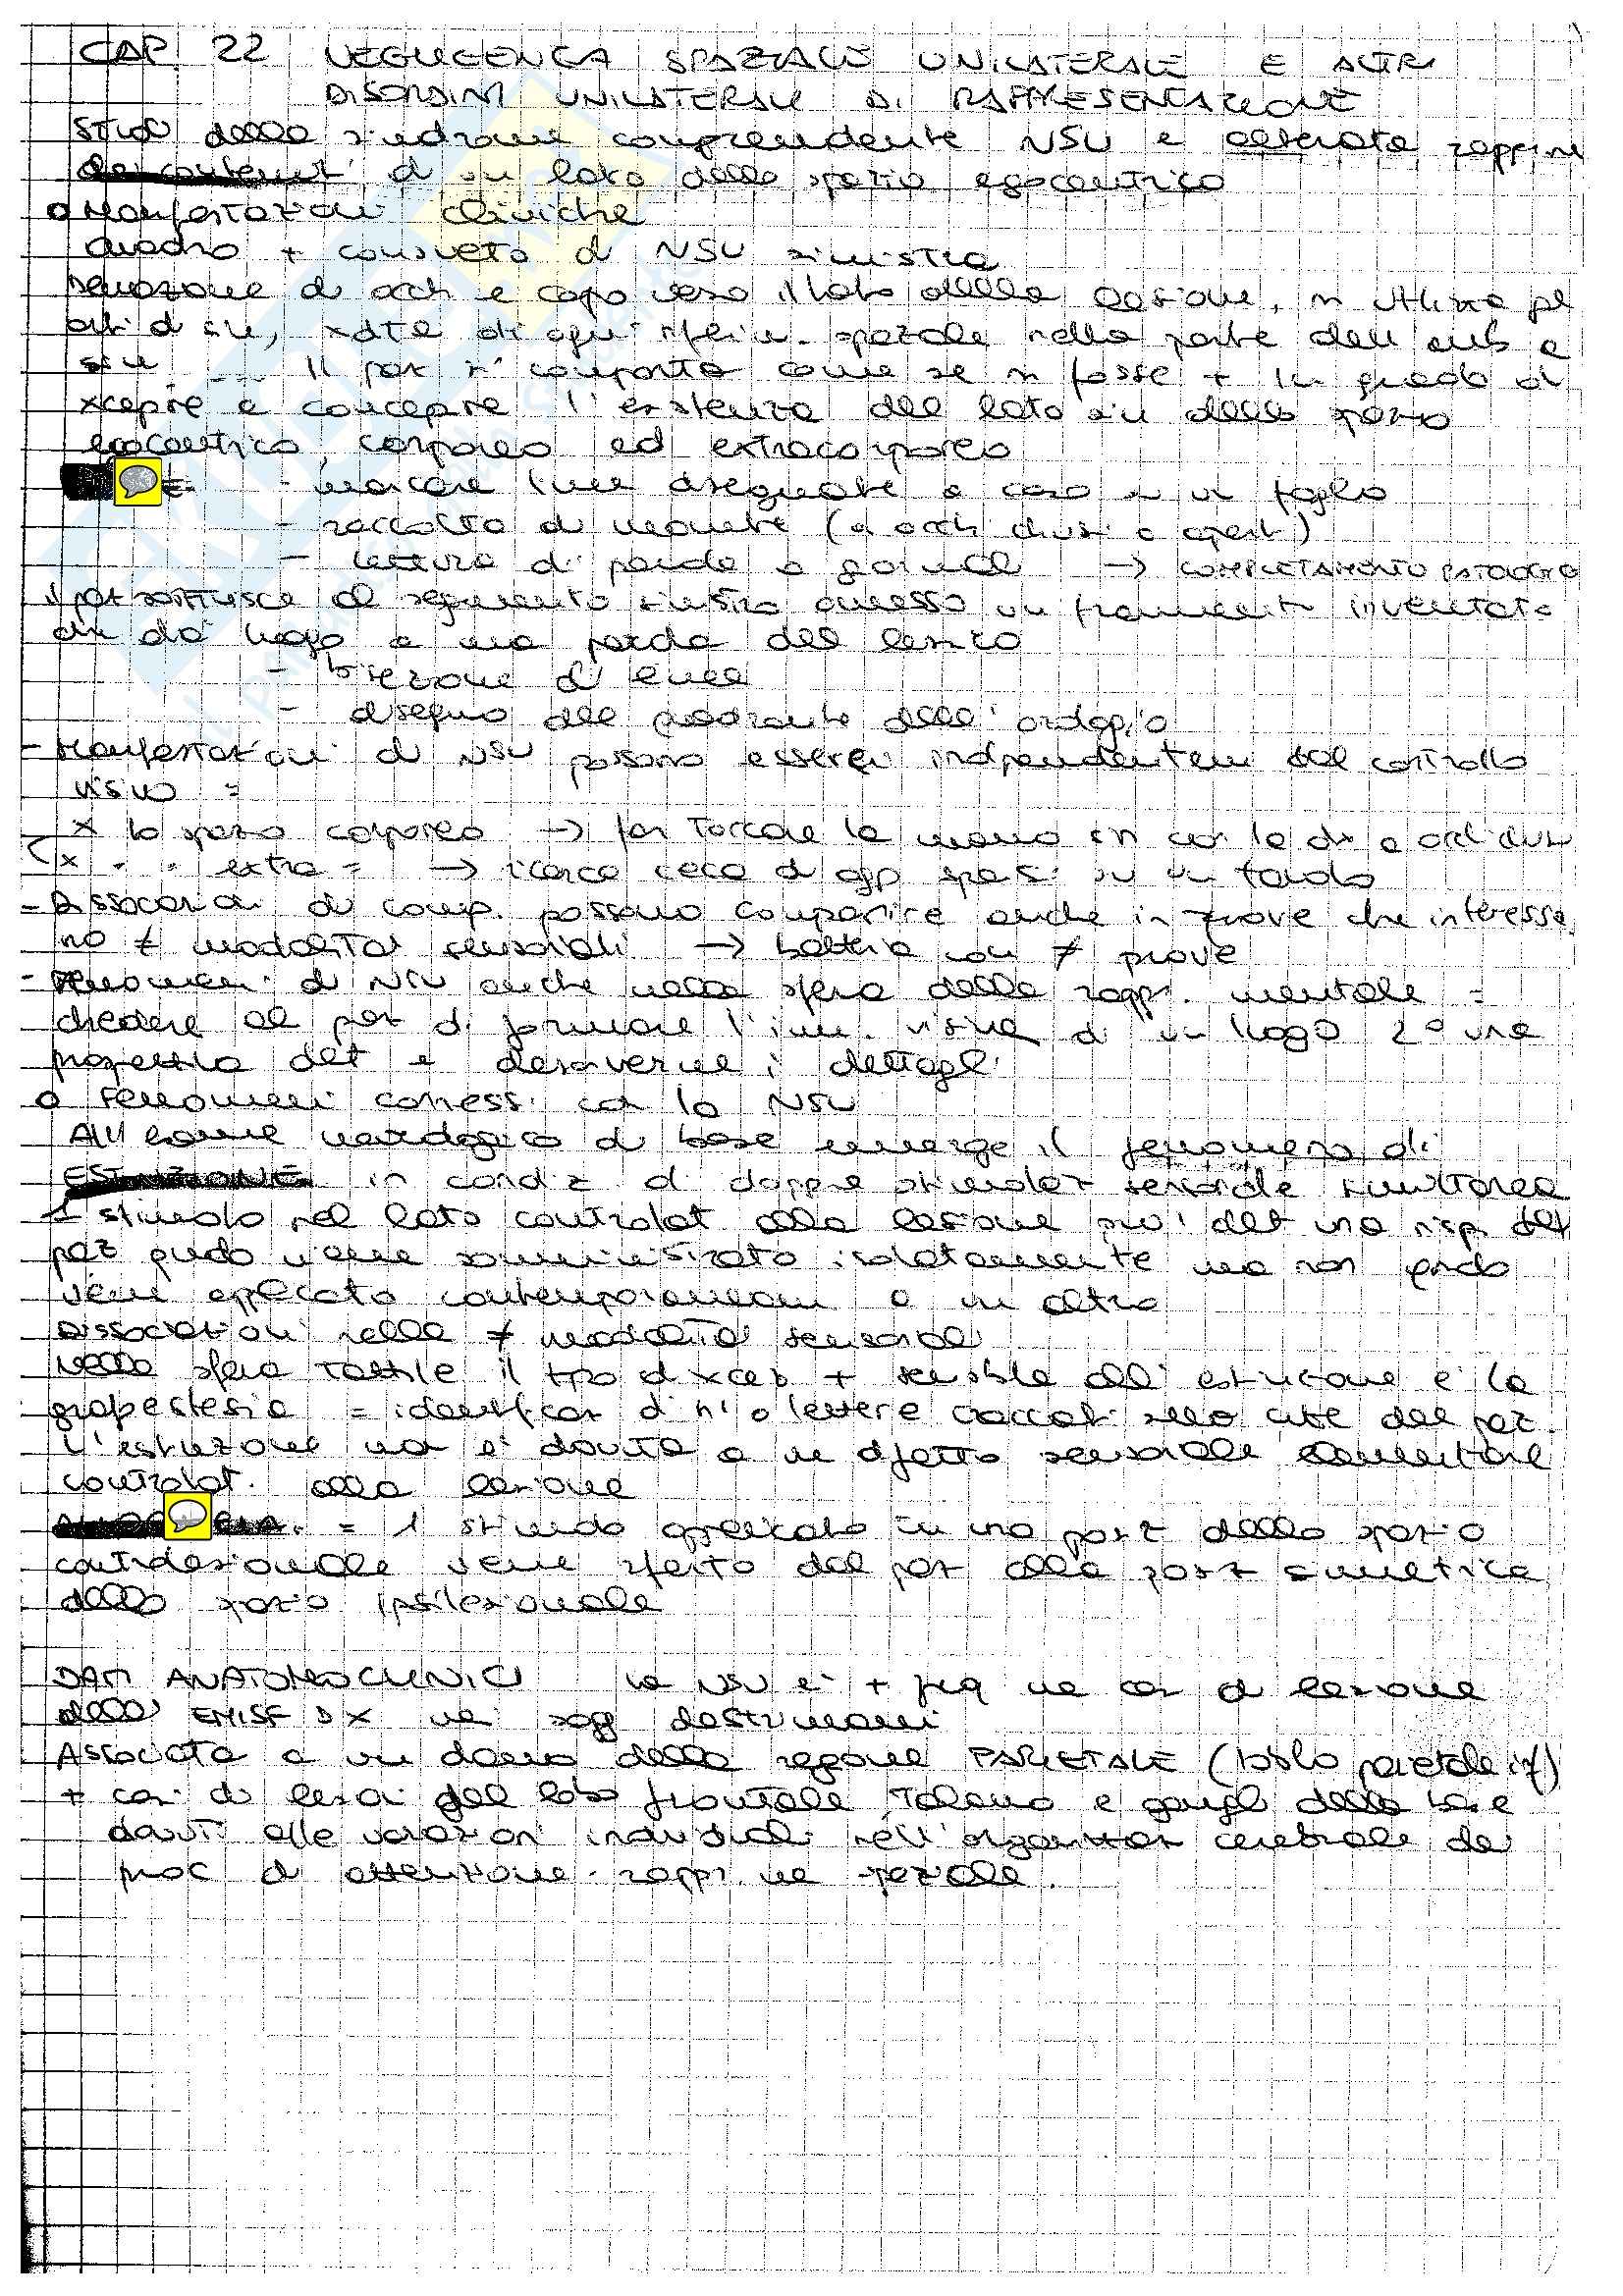 CAP. 22 NEGLIGENZA SPAZIALE UNILATERALE E ALTRI
DISORDINI UNILATERALI DI RAPPRESENTAZIONE
STUDIO della sindrome comprendente NSU e alterata rappr.ne
dei contenuti di un lato dello spazio egocentrico
o Manifestazioni cliniche
quadro + consueto di NSU sinistra
deviazione di occhi e capo verso il lato della lesione, n utilizza
arti di sin, di ogni spaziale nella parte dell'amb a
sin ... Il paz si comporta come se n fosse + in grado di
xcepire e concepire l'esistenza del lato sin dello spazio
egocentrico, corporeo ed extracorporeo
- marcare linee disegnate a caso su un foglio
- raccolta di monete (a occhi chiusi o aperti)
- lettura di parole o giornali → COMPLETAMENTO PATOLOGICO
il paz sostituisce al segmento sinistro omesso un frammento inventato
che dà luogo a una parola del lessico
- bisezione di linee
- disegno del quadrante dell'orologio
- Manifestazioni di NSU possono essere indipendentem dal controllo
visivo =
x lo spazio corporeo → far toccare la mano sin con la dx a occhi chiusi
x " " extra = → ricerca cieca di ogg sparsi su un tavolo
- Dissociazioni di comp. possono comparire anche in prove che interessa
no ≠ modalità sensoriali → batteria con ≠ prove
- Fenomeni di NSU anche nella sfera della rappr. mentale =
chiedere al paz di formare l'imm. visiva di un luogo 2° una
prospettiva det e descriverne i dettagli
o Fenomeni connessi con la NSU
All'esame neurologico di base emerge il fenomeno di
ESTINZIONE in condiz di doppia stimolaz sensoriale simultanea
1 stimolo nel lato controlat alla lesione può det una risp del
paz qndo viene somministrato isolatamente ma non qndo
viene applicato contemporaneam a un altro
Dissociazioni nelle ≠ modalità sensoriali
Nella sfera tattile il tipo di xcez + sensibile all'estinzione è la
grafestesia = identificaz di n° o lettere tracciati sulla cute del paz.
L'estinzione non è dovuta a un difetto sensoriale elementare
controlat. alla lesione
= 1 stimolo applicato in una posiz dello spazio
controlesionale viene riferito dal paz alla posiz simmetrica
dello spazio ipsilesionale
DATI ANATOMOCLINICI La NSU è + freq in casi di lesione
dell' EMISF DX nei sogg destrimani
Associata a un danno della regione PARIETALE (lobulo parietale inf)
+ casi di lesioni del lobo frontale, talamo e gangli della base
dovuti alle variazioni individuali nell'organizzaz cerebrale dei
proc di attenzione - rappr.ne spaziale.